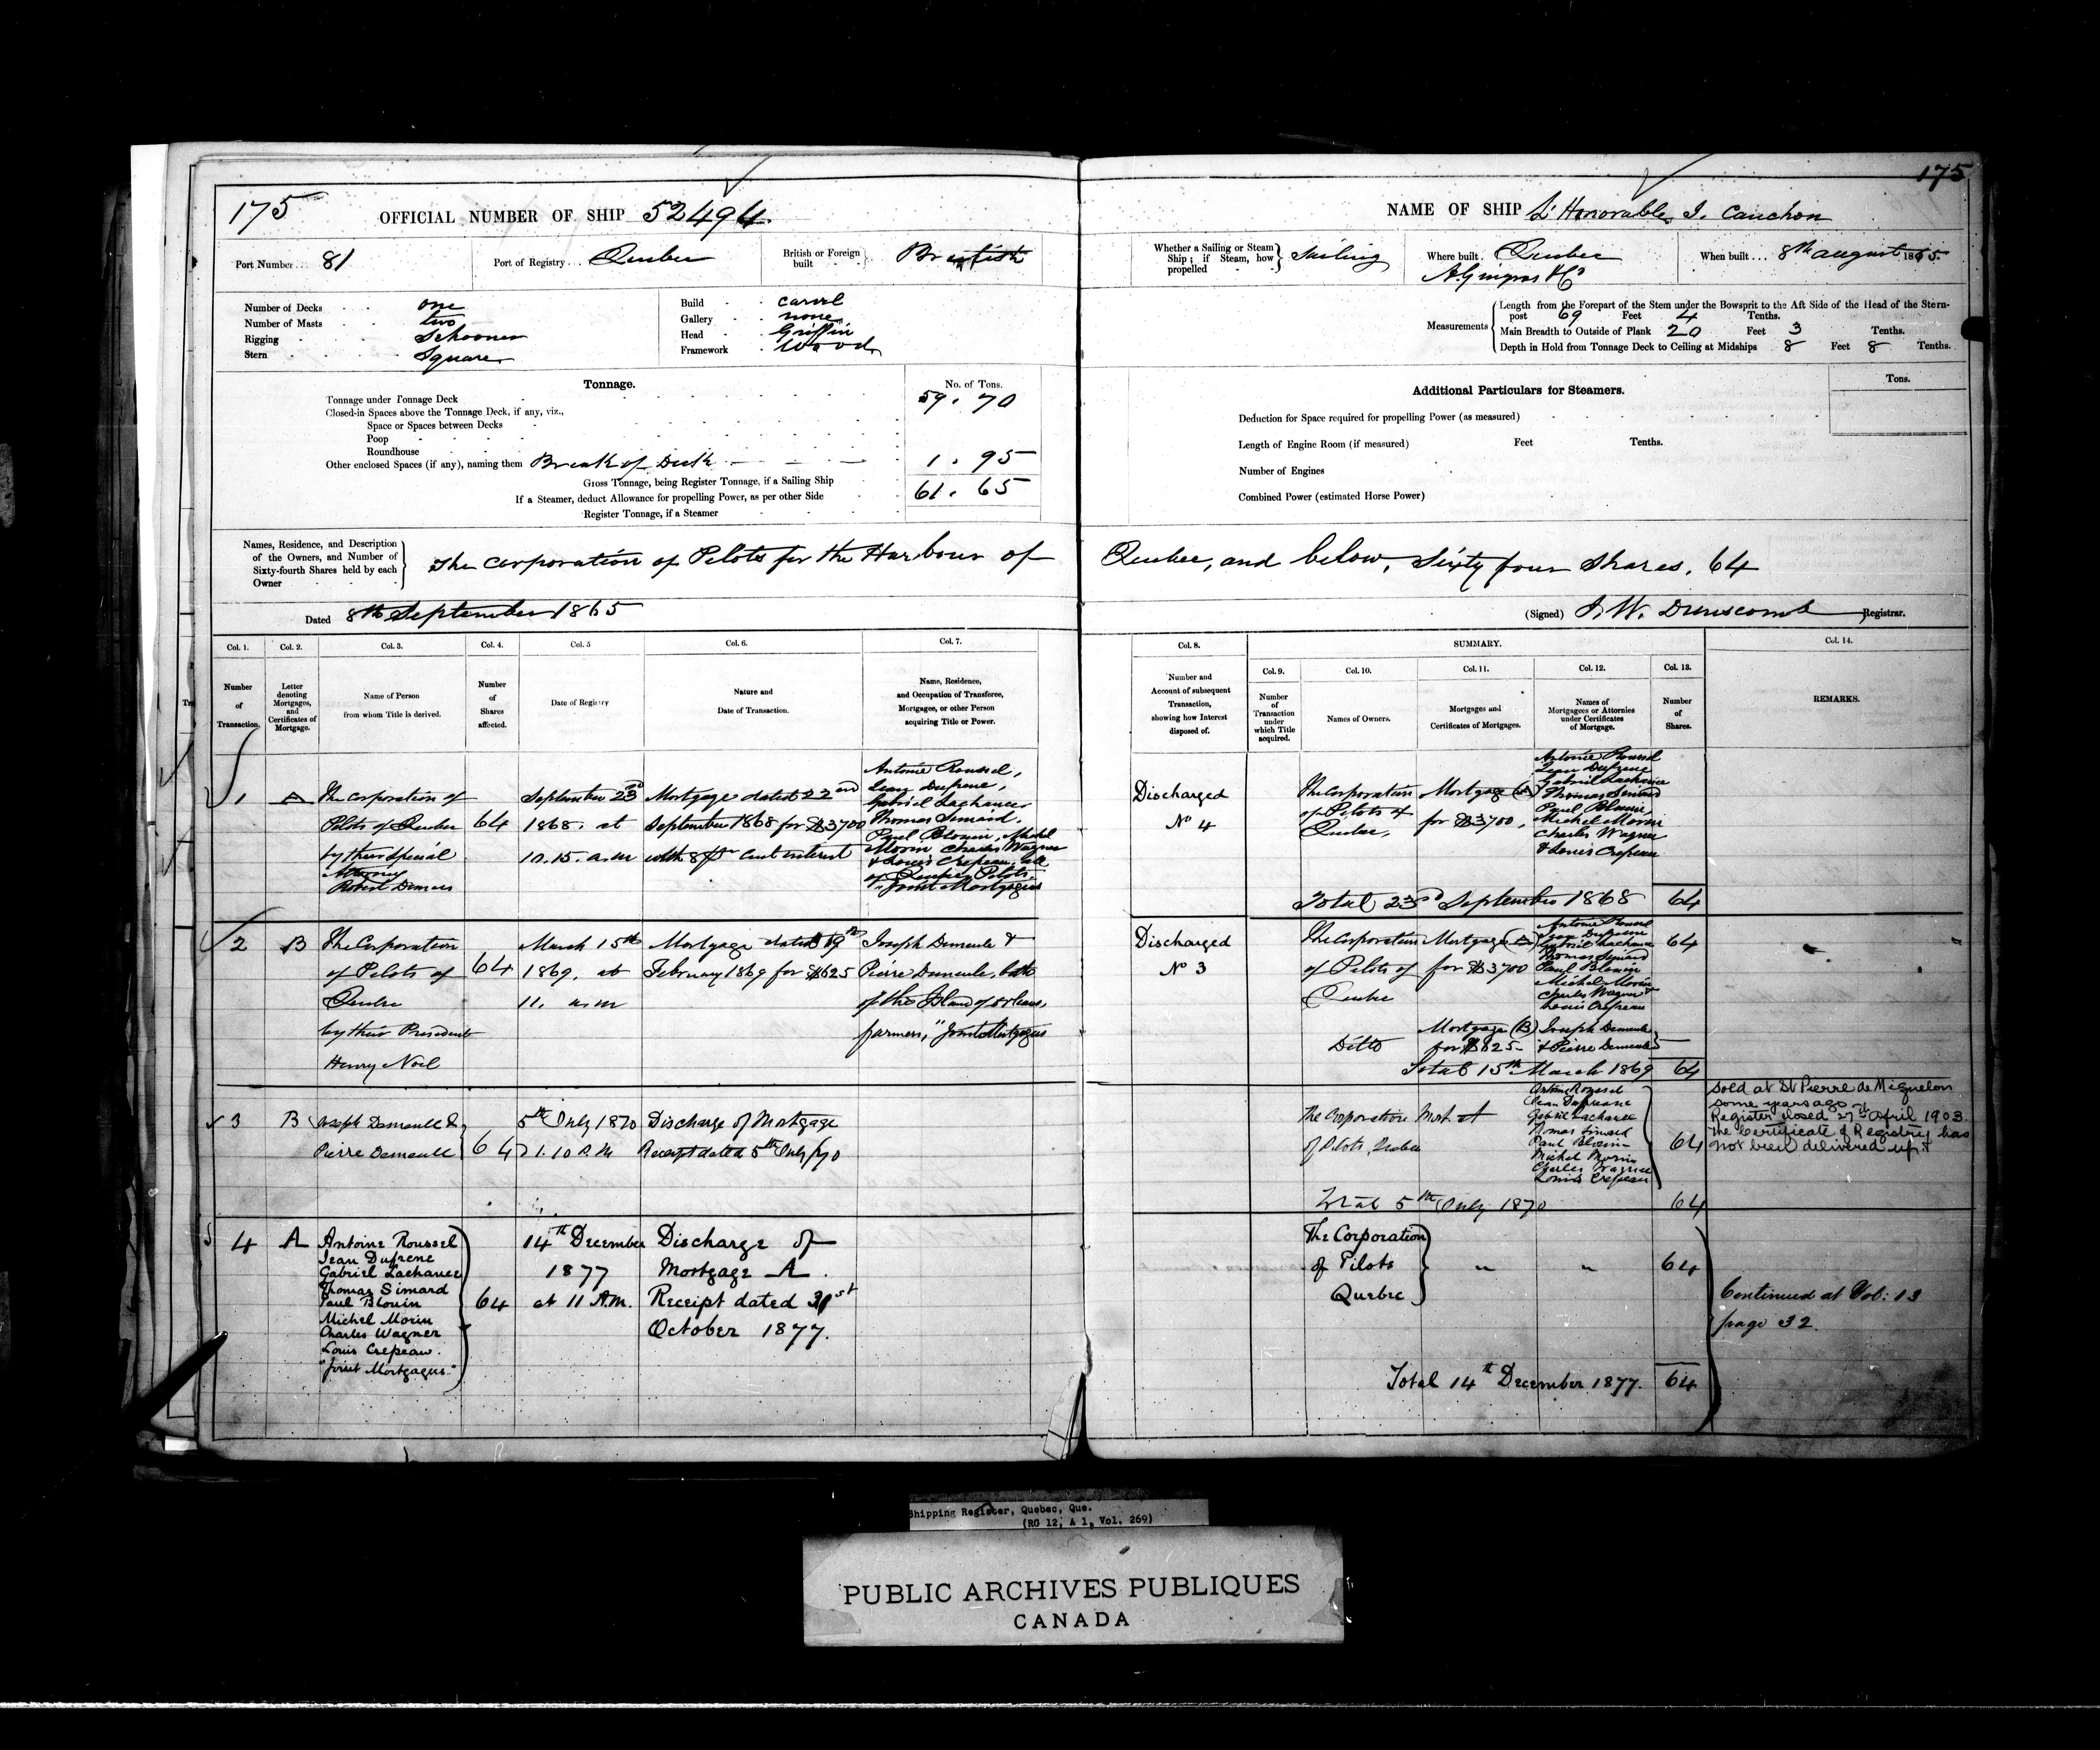 175
175
OFFICIAL NUMBER OF SHIP 52494.
NAME OF SHIP L'Honorable J. Cauchon
Port Number 81
Port of Registry Quebec
British or Foreign built British
Whether a Sailing or Steam Ship; if Steam, how propelled Sailing
Where built Quebec
A. Gingras & Co
When built 8th august 1865.
Number of Decks one
Number of Masts two
Rigging Schooner
Stern Square
Build Carvel
Gallery none
Head Griffin
Framework Wood
Measurements
Length from the Forepart of the Stem under the Bowsprit to the Aft Side of the Head of the Stern-
post 69 Feet 4 Tenths.
Main Breadth to Outside of Plank 20 Feet 3 Tenths.
Depth in Hold from Tonnage Deck to Ceiling at Midships 8 Feet 8 Tenths.
Tonnage.
No. of Tons.
Tonnage under Tonnage Deck 59. 70
Closed-in Spaces above the Tonnage Deck, if any, viz.,
Space or Spaces between Decks
Poop
Roundhouse
Other enclosed Spaces (if any), naming them Break of Deck 1. 95
Gross Tonnage, being Register Tonnage, if a Sailing Ship 61. 65
If a Steamer, deduct Allowance for propelling Power, as per other Side
Register Tonnage, if a Steamer
Additional Particulars for Steamers.
Tons.
Deduction for Space required for propelling Power (as measured)
Length of Engine Room (if measured) Feet Tenths.
Number of Engines
Combined Power (estimated Horse Power)
Names, Residence, and Description
of the Owners, and Number of
Sixty-fourth Shares held by each
Owner
The Corporation of Pilots for the Harbour of Quebec, and below, Sixty four Shares, 64
Dated 8th September 1865
(Signed) J. W. Dunscomb Registrar.
Col. 1.
Number
of
Transaction.
Col. 2.
Letter
denoting
Mortgages,
and
Certificates of
Mortgage.
Col. 3.
Name of Person
from whom Title is derived.
Col. 4.
Number
of
Shares
affected.
Col. 5
Date of Registry
Col. 6.
Nature and
Date of Transaction.
Col. 7.
Name, Residence,
and Occupation of Transferee,
Mortgagee, or other Person
acquiring Title or Power.
Col. 8.
Number and
Account of subsequent
Transaction,
showing how Interest
disposed of.
SUMMARY.
Col. 9.
Number
of
Transaction
under
which Title
acquired.
Col. 10.
Names of Owners.
Col. 11.
Mortgages and
Certificates of Mortgages.
Col. 12.
Names of
Mortgagees or Attornies
under Certificates
of Mortgage.
Col. 13.
Number
of
Shares.
Col. 14.
REMARKS.
1
A
The Corporation of
Pilots of Quebec
by their Special
Attorney
Robert Demers
64
September 23rd
1868. at
10.15. a.m
Mortgage dated 22nd
September 1868 for $3700
with 8 pr Cent interest
Antoine Roussel,
Jean Dufrene,
Gabriel Lachance
Thomas Simard,
Paul Blouin, Michel
Morin Charles Wagner
& Louis Crepeau, all
of Quebec, Pilots.
"Joint Mortgagees
Discharged
No 4
The Corporation
of Pilots of
Quebec,
Mortgage (A)
for $3700,
Antoine Roussel
Jean Dufrene
Gabriel Lachance
Thomas Simard
Paul Blouin,
Michel Morin
Charles Wagner
& Louis Crepeau
Total 23rd September 1868 64
2
B
The Corporation
of Pilots of
Quebec
by their President
Henry Noel
64
March 15th
1869. at
11. a.m
Mortgage dated 19th
February 1869 for $825
Joseph Demeule &
Pierre Demeule, both
of the Island of Orleans,
farmers, "Joint Mortgagees
Discharged
No 3
The Corporation
of Pilots of
Quebec
Mortgage (A)
for $3700
Antoine Roussel
Jean Dufrene
Gabriel Lachance
Thomas Simard
Paul Blouin
Michel Morin
Charles Wagner &
Louis Crepeau
64
Ditto
Mortgage (B)
for $825-
Joseph Demeule
& Pierre Demeule
Total 15th March 1869 64
3
B
Joseph Demeule &
Pierre Demeule
64
5th July 1870
1.10 P.M
Discharge of Mortgage
Receipt dated 5th July /70
The Corporation
of Pilots, Quebec
Mort. A
Antoine Roussel
Jean Dufresne
Gabriel Lachance
Thomas Simard
Paul Blouin
Michel Morin
Charles Wagner
Louis Crepeau
64
Total 5th July 1870 64
Sold at St Pierre de Miquelon
some years ago
Register closed 27th April 1903.
The Certificate of Registry has
not been delivered up.
4
A
Antoine Roussel
Jean Dufrene
Gabriel Lachance
Thomas Simard
Paul Blouin
Michel Morin
Charles Wagner
Louis Crepeau.
"Joint Mortgagees"
64
14th December
1877
at 11 A.M.
Discharge of
Mortgage A.
Receipt dated 31st
October 1877.
The Corporation
of Pilots
Quebec
" "
64
Continued at Vol: 13
page 32
Total 14th December 1877. 64
Shipping Register, Quebec, Que.
(RG 12, A 1, Vol. 269)
PUBLIC ARCHIVES PUBLIQUES
CANADA